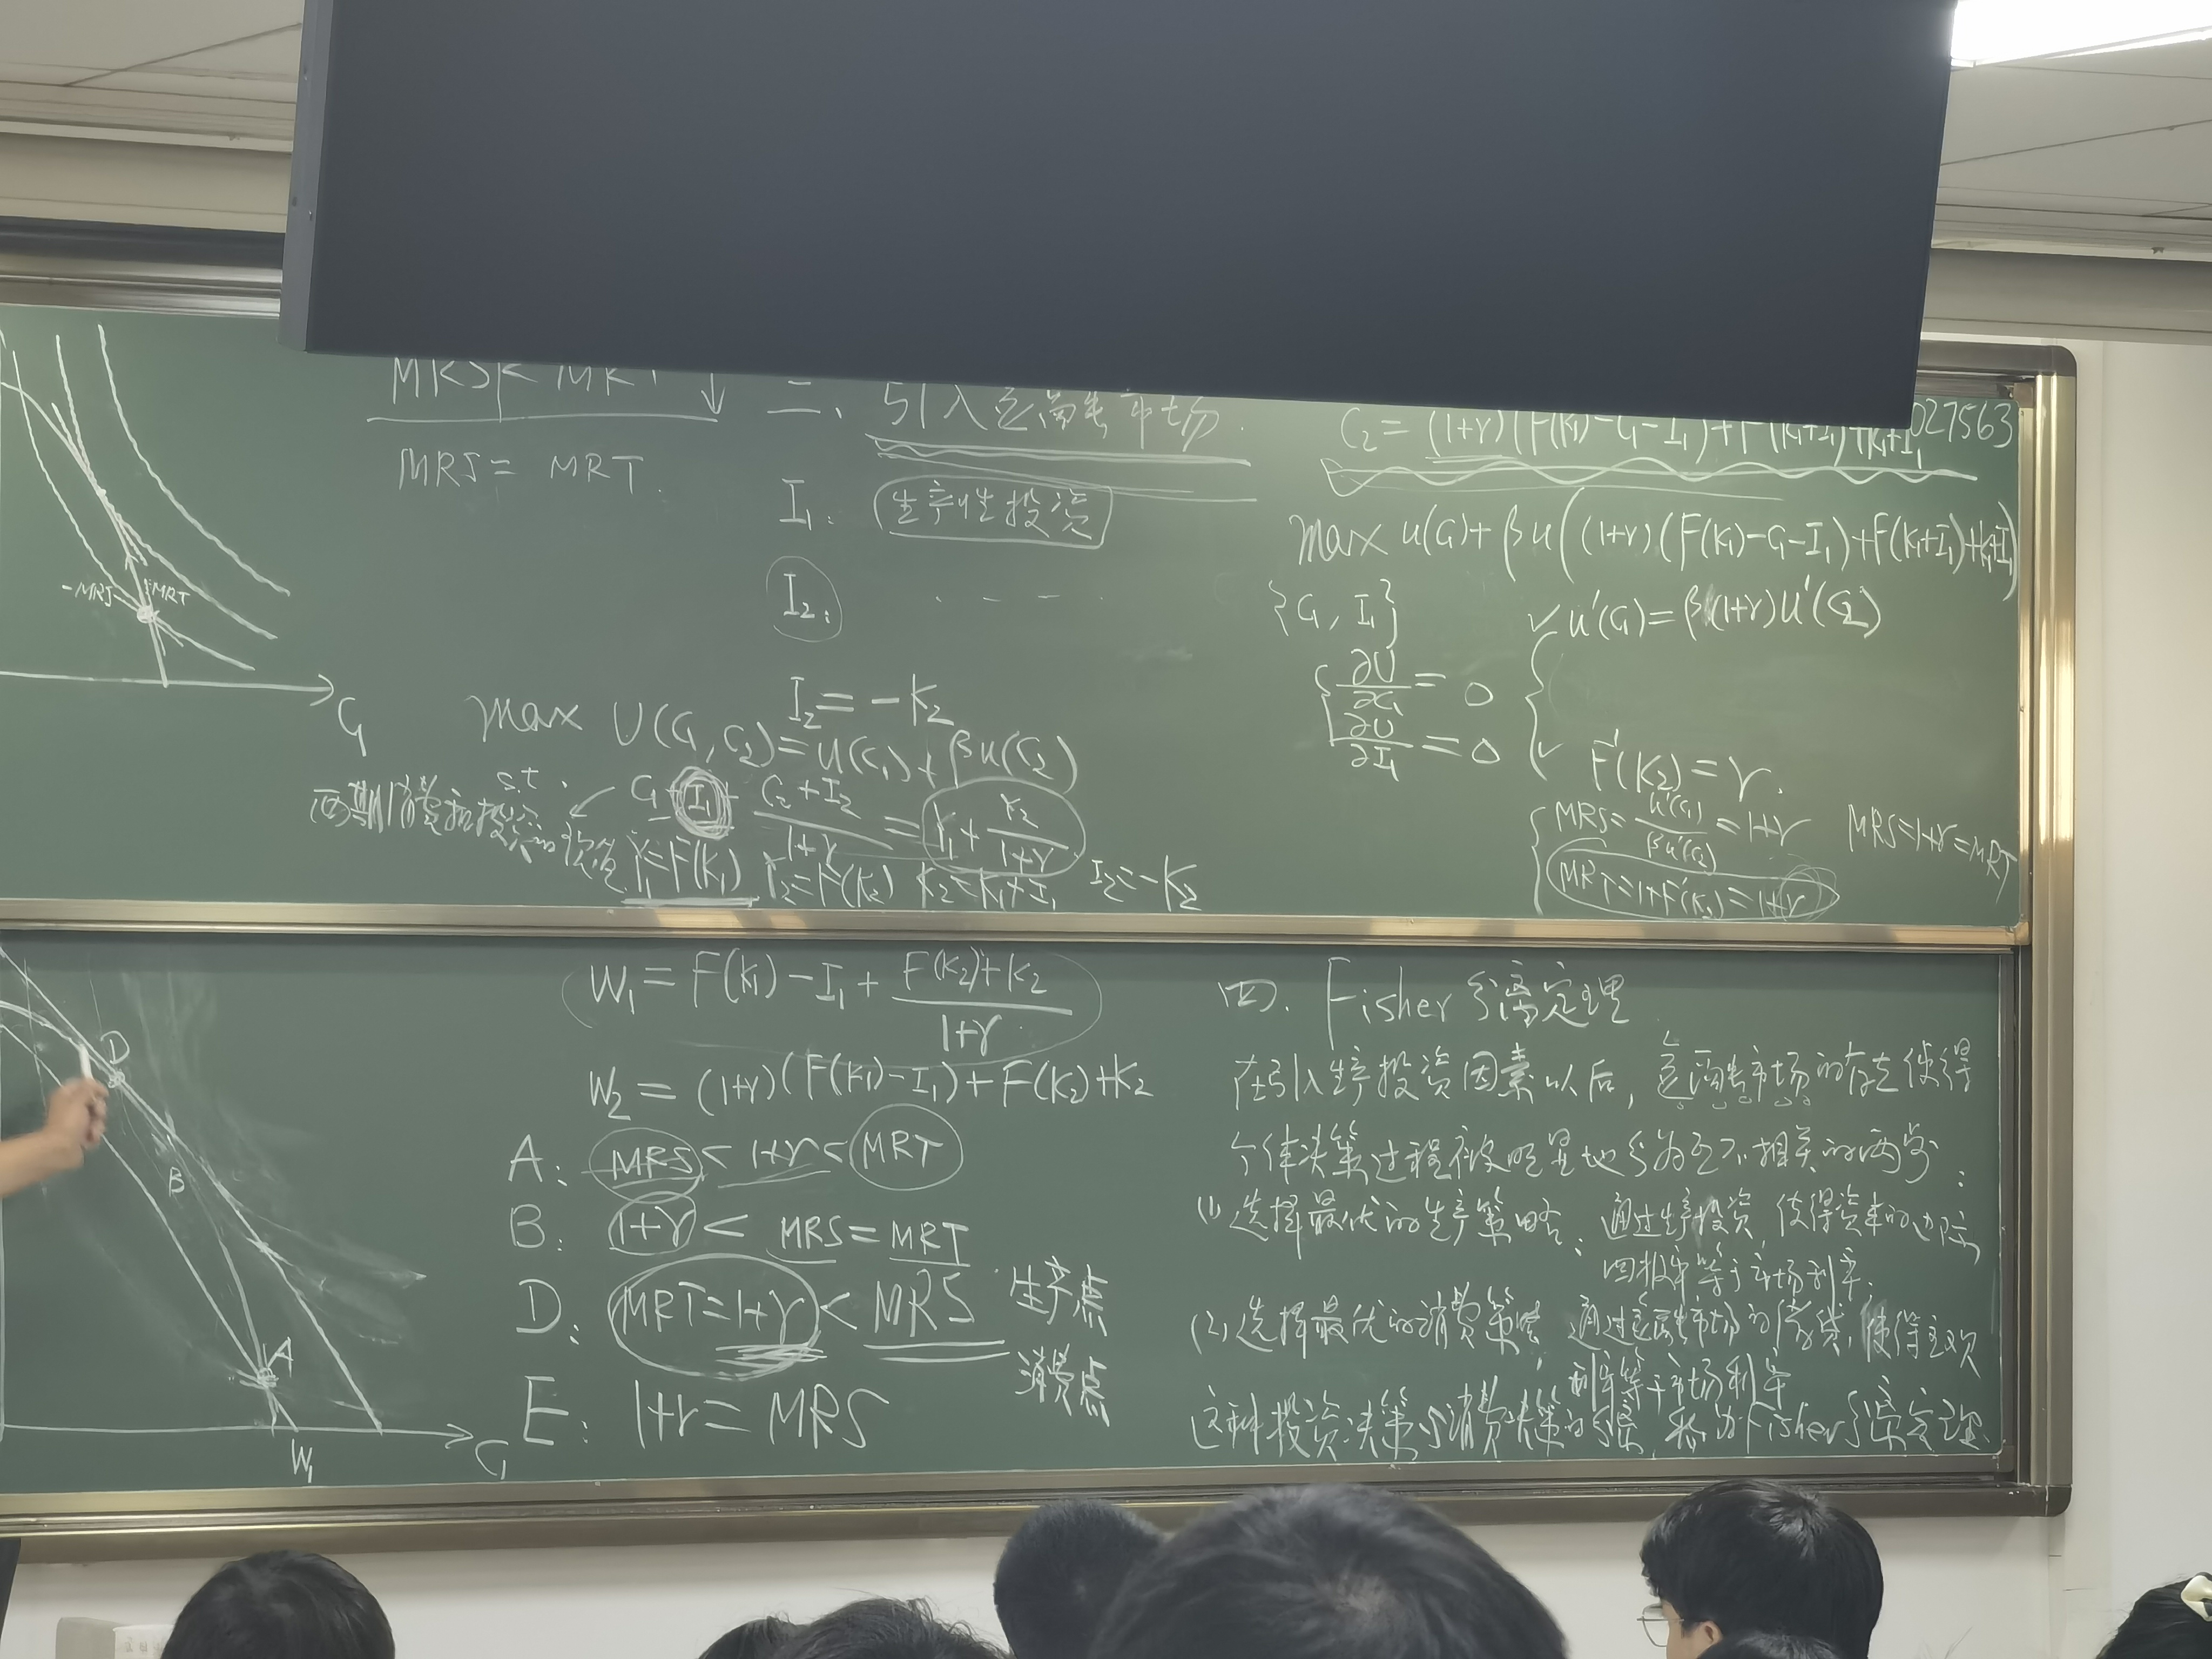 MRS< MRT
MRS= MRT.
-MRS
MRT
C₁
二、引入金融市场.
I₁: 生产性投资
I₂: - - - -
I₂= -K₂
max U(C₁,C₂)=u(C₁)+βu(C₂)
s.t. C₁+I₁+(C₂+I₂)/(1+r)=Y₁+Y₂/(1+r)
两期消费和投资的
Y₁=F(K₁) Y₂=F(K₂) K₂=K₁+I₁ I₂=-K₂
C₂= (1+r)(F(K₁)-C₁-I₁)+F(K₁+I₁)+K₁+I₁
027563
max u(C₁)+βu((1+r)(F(K₁)-C₁-I₁)+F(K₁+I₁)+K₁+I₁)
{C₁, I₁}
∂U/∂C₁=0
∂U/∂I₁=0
u'(C₁)=β(1+r)u'(C₂)
F'(K₂)=r.
MRS=u'(C₁)/βu'(C₂)=1+r
MRT=1+F'(K₂)=1+r
MRS=1+r=MRT
D
B
A
W₁
C₁
W₁=F(K₁)-I₁+(F(K₂)+K₂)/(1+r)
W₂=(1+r)(F(K₁)-I₁)+F(K₂)+K₂
A: MRS<1+r<MRT
B: 1+r<MRS=MRT
D: MRT=1+r<MRS 生产点
消费点
E: 1+r=MRS
四. Fisher分离定理
在引入生产投资因素以后，金融市场的存在使得
个体决策过程被明显地分为互不相关的两步:
(1)选择最优的生产策略: 通过生产投资,使得资本的边际
回报率等于市场利率;
(2)选择最优的消费策略: 通过金融市场的借贷,使得主观
利率等于市场利率
这种投资决策与消费决策的分离,称为Fisher分离定理.